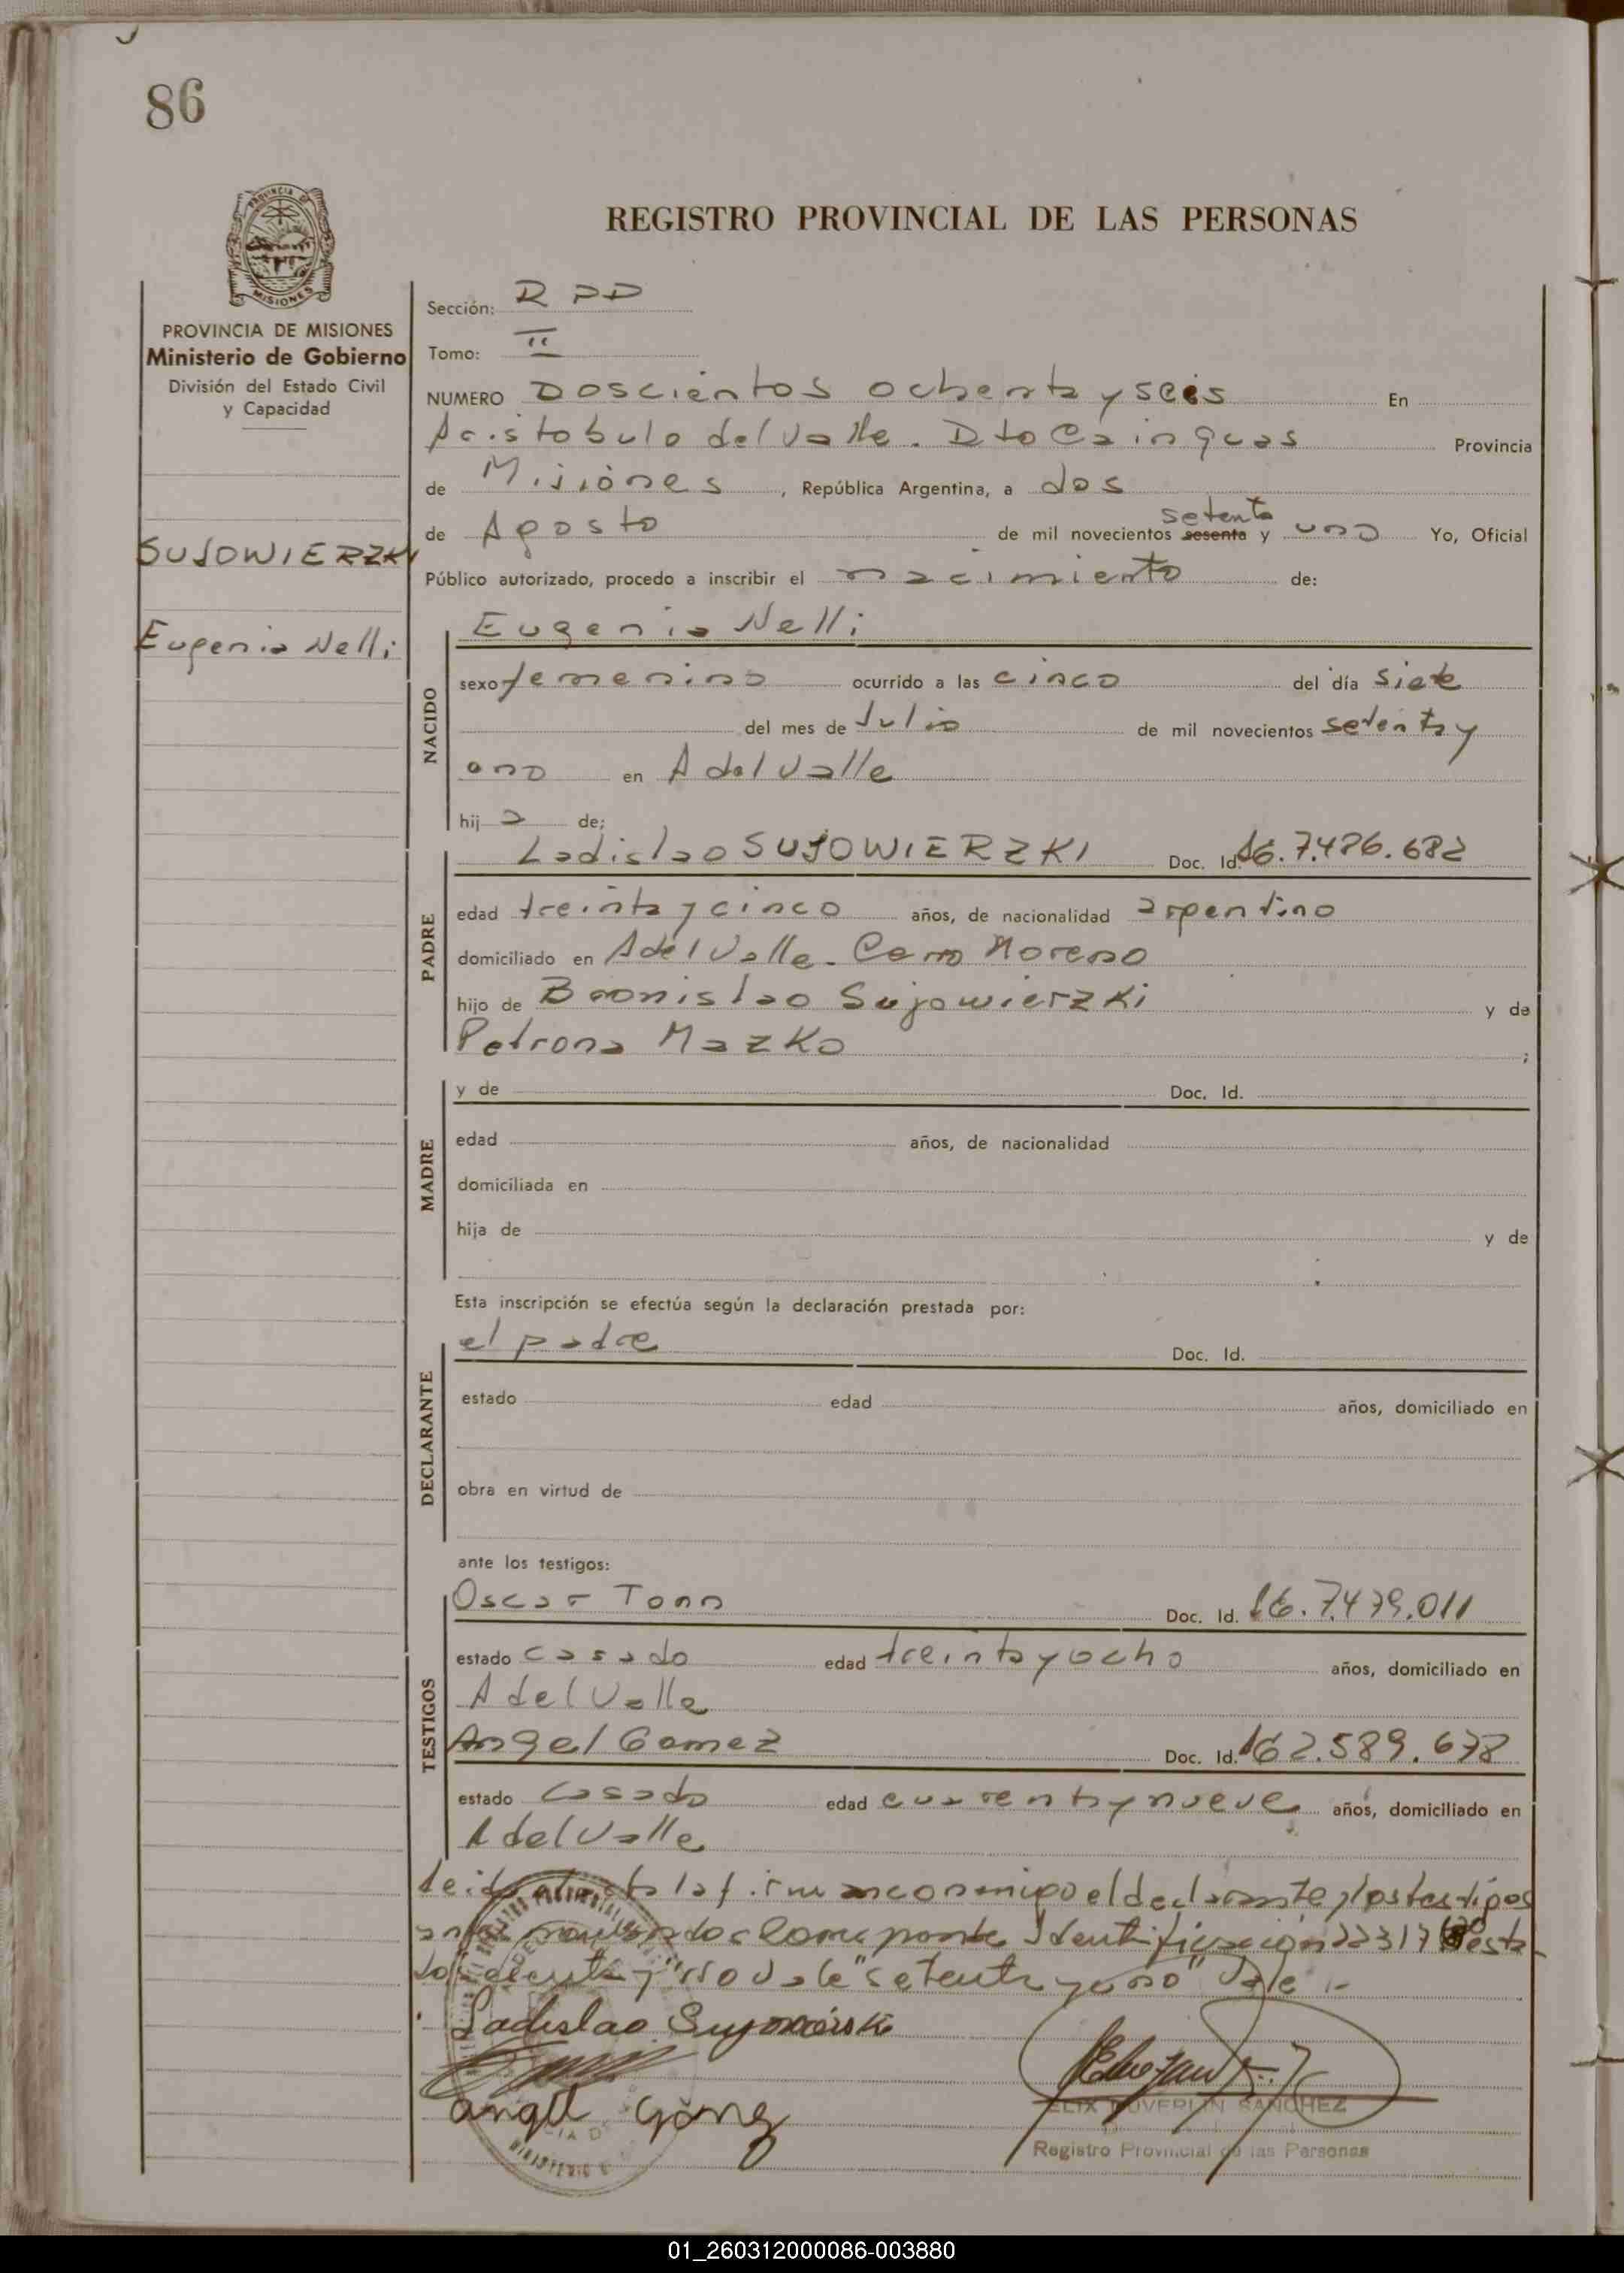 86
PROVINCIA DE
MISIONES
PROVINCIA DE MISIONES
Ministerio de Gobierno
División del Estado Civil
y Capacidad
SUJOWIERZKI
Eugenia Nelli
REGISTRO PROVINCIAL DE LAS PERSONAS
Sección: R P D
Tomo: II
NUMERO Doscientos ochenta y seis En
Aristobulo del Valle. Dto Cainguas Provincia
de Misiones, República Argentina, a dos
setenta
de Agosto de mil novecientos sesenta y uno Yo, Oficial
Público autorizado, procedo a inscribir el nacimiento de:
Eugenia Nelli
NACIDO
sexo femenino ocurrido a las cinco del día siete
del mes de Julio de mil novecientos setenta y
uno en A del Valle
hij a de;
PADRE
Ladislao SUJOWIERZKI Doc. Id. M6.7.486.682
edad treinta y cinco años, de nacionalidad argentino
domiciliado en A del Valle - Cerro Moreno
hijo de Bronislao Sujowierzki y de
Petrona Mazko ;
MADRE
y de Doc. Id.
edad años, de nacionalidad
domiciliada en
hija de y de
Esta inscripción se efectúa según la declaración prestada por:
DECLARANTE
el padre Doc. Id.
estado edad años, domiciliado en
obra en virtud de
ante los testigos:
TESTIGOS
Oscar Tonn Doc. Id. 16.7.479.011
estado casado edad treinta y ocho años, domiciliado en
A del Valle
Angel Gomez Doc. Id. M62.589.678
estado casado edad cuarenta y nueve años, domiciliado en
A del Valle
Leida el acta la firman conmigo el declarante y los testigos
Identificación 22317
vale "setenta y uno" Vale.-
Ladislao
Angel Gomez
FELIX DUVERLIN SANCHEZ
Registro Provincial de las Personas
01_260312000086-003880